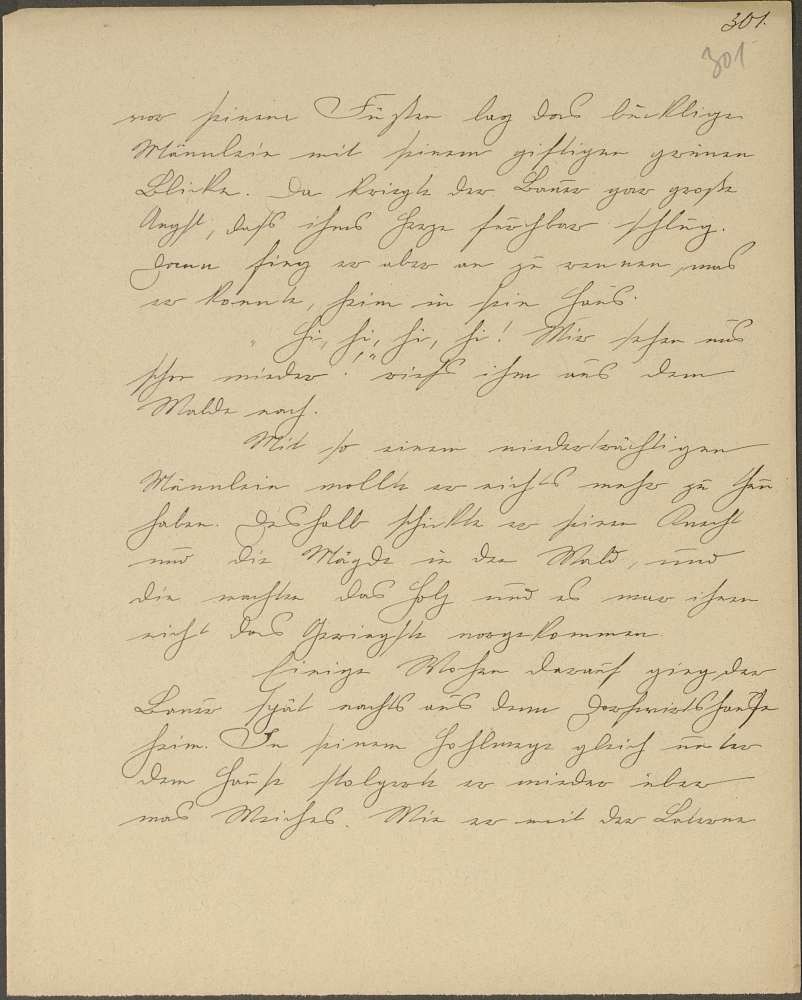 301.
301
vor seinen Füßen lag das bucklige
Männlein mit seinem giftigen grünen
Blicke. Da kriegte der Bauer gar große
Angst, daß ihms Herze furchbar schlug.
Dann fing er aber an zu rennen, was
er konnte, heim in sein Haus.
„Hi, hi, hi, hi! Wir sehen uns
schon wieder!" riefs ihm aus dem
Walde nach.
Mit so einem niederträchtigen
Männlein wollte er nichts mehr zu thun
haben. Deshalb schickte er seinen Knecht
und die Mägde in den Wald, und
die machten das Holz und es war ihnen
nicht das Geringste vorgekommen.
Einige Wochen darauf ging der
Bauer spät nachts aus dem Dorfwirtshause
heim. In seinem Hohlwege gleich unter
dem Hause stolperte er wieder über
was Weiches. Wie er mit der Laterne